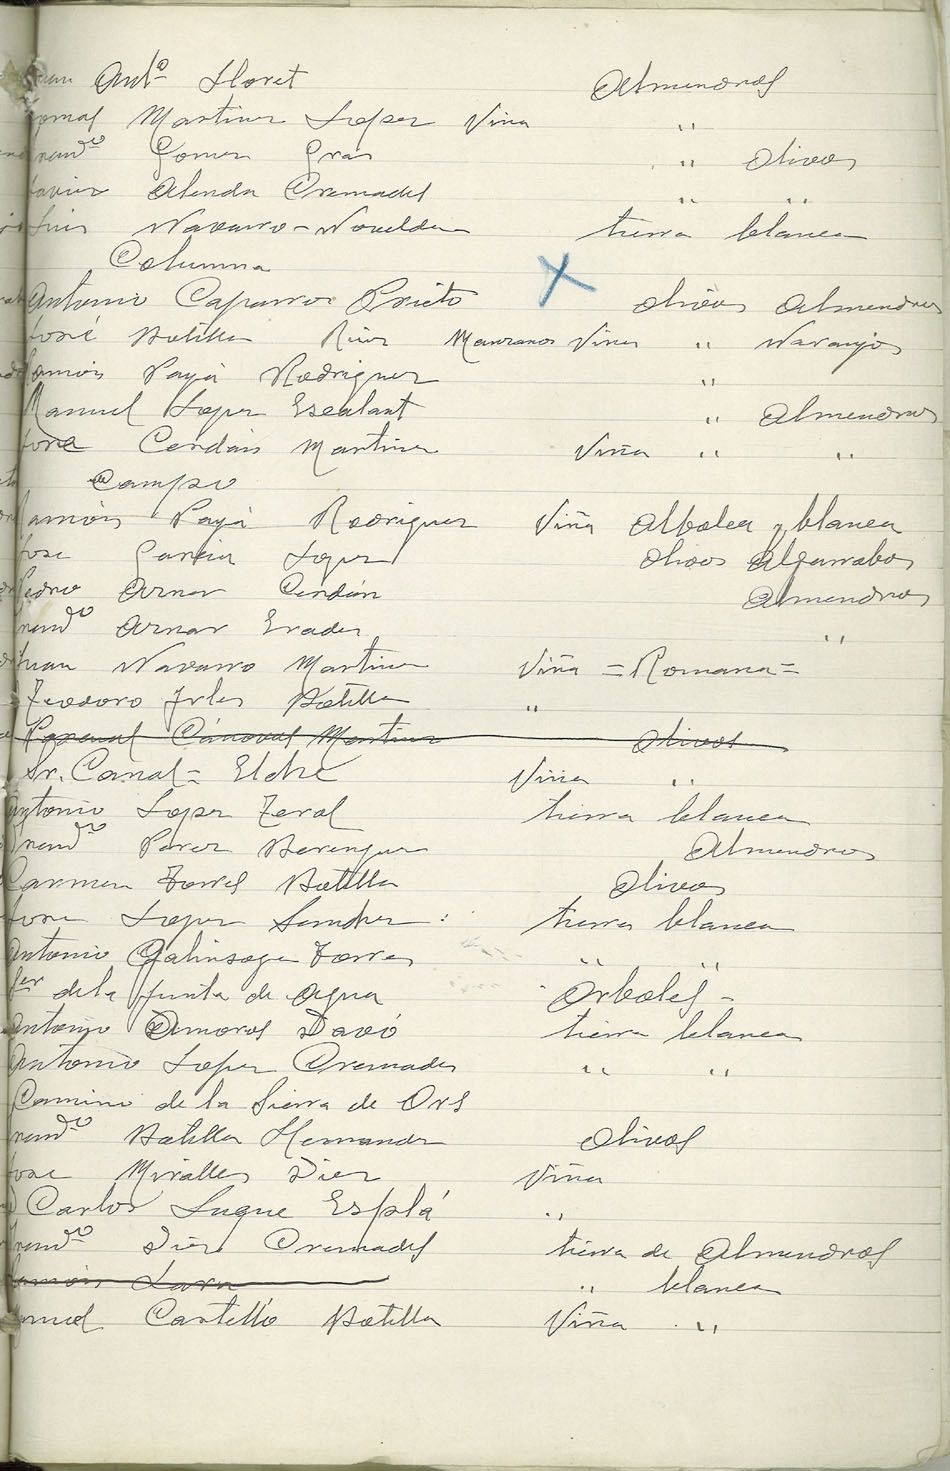 Juan Antº Lloret Almendros
Tomas Martinez Lopez Viña "
Francº Gomez Gras " Olivos
Javier Alenda Cremades " "
Luis Navarro - Novelda tierra blanca
Columna
Antonio Caparros Prieto olivos Almendros
José Botella Rius Manzanos Viña " Naranjos
Ramón Payá Rodriguez "
Manuel Lopez Escalant " Almendros
Jose Cerdán Martinez Viña " "
Campo
Ramón Payá Rodriguez Viña Albolea y blanca
Jose Garcia Lopez olivos Algarrabos
Pedro Aznar Cerdán Almendros
Francº Aznar Erades "
Juan Navarro Martinez Viña = Romana =
Teodoro Irles Botella "
Pascual Cánovas Martinez Olivos
Sr. Canals = Elche Viña "
Antonio Lopez Terol tierra blanca
Francº Perez Berenguer Almendros
Carmen Torres Botella Olivos
Jose Lopez Sanchez : tierra blanca
Antonio Galinsoga Torres " "
Ser de la Junta de Agua Arboles -
Antonio Amoros Davó tierra blanca
Antonio Lopez Cremades " "
Camino de la Sierra de Ors
Francº Botella Hernandez Olivos
Jose Miralles Diez Viña
Carlos Luque Esplá "
Francº Diez Cremades tierra de Almendros
Ramón Lara " blanca
Manuel Castelló Botella Viña "